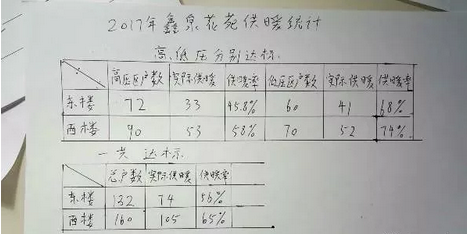 2017年鑫泉花苑供暖统计
高、低压分别达标
高压区户数 实际供暖 供暖率 低压区户数 实际供暖 供暖率
东楼 72 33 45.8% 60 41 68%
西楼 90 53 58% 70 52 74%
一共达标
总户数 实际供暖 供暖率
东楼 132 74 56%
西楼 160 105 65%